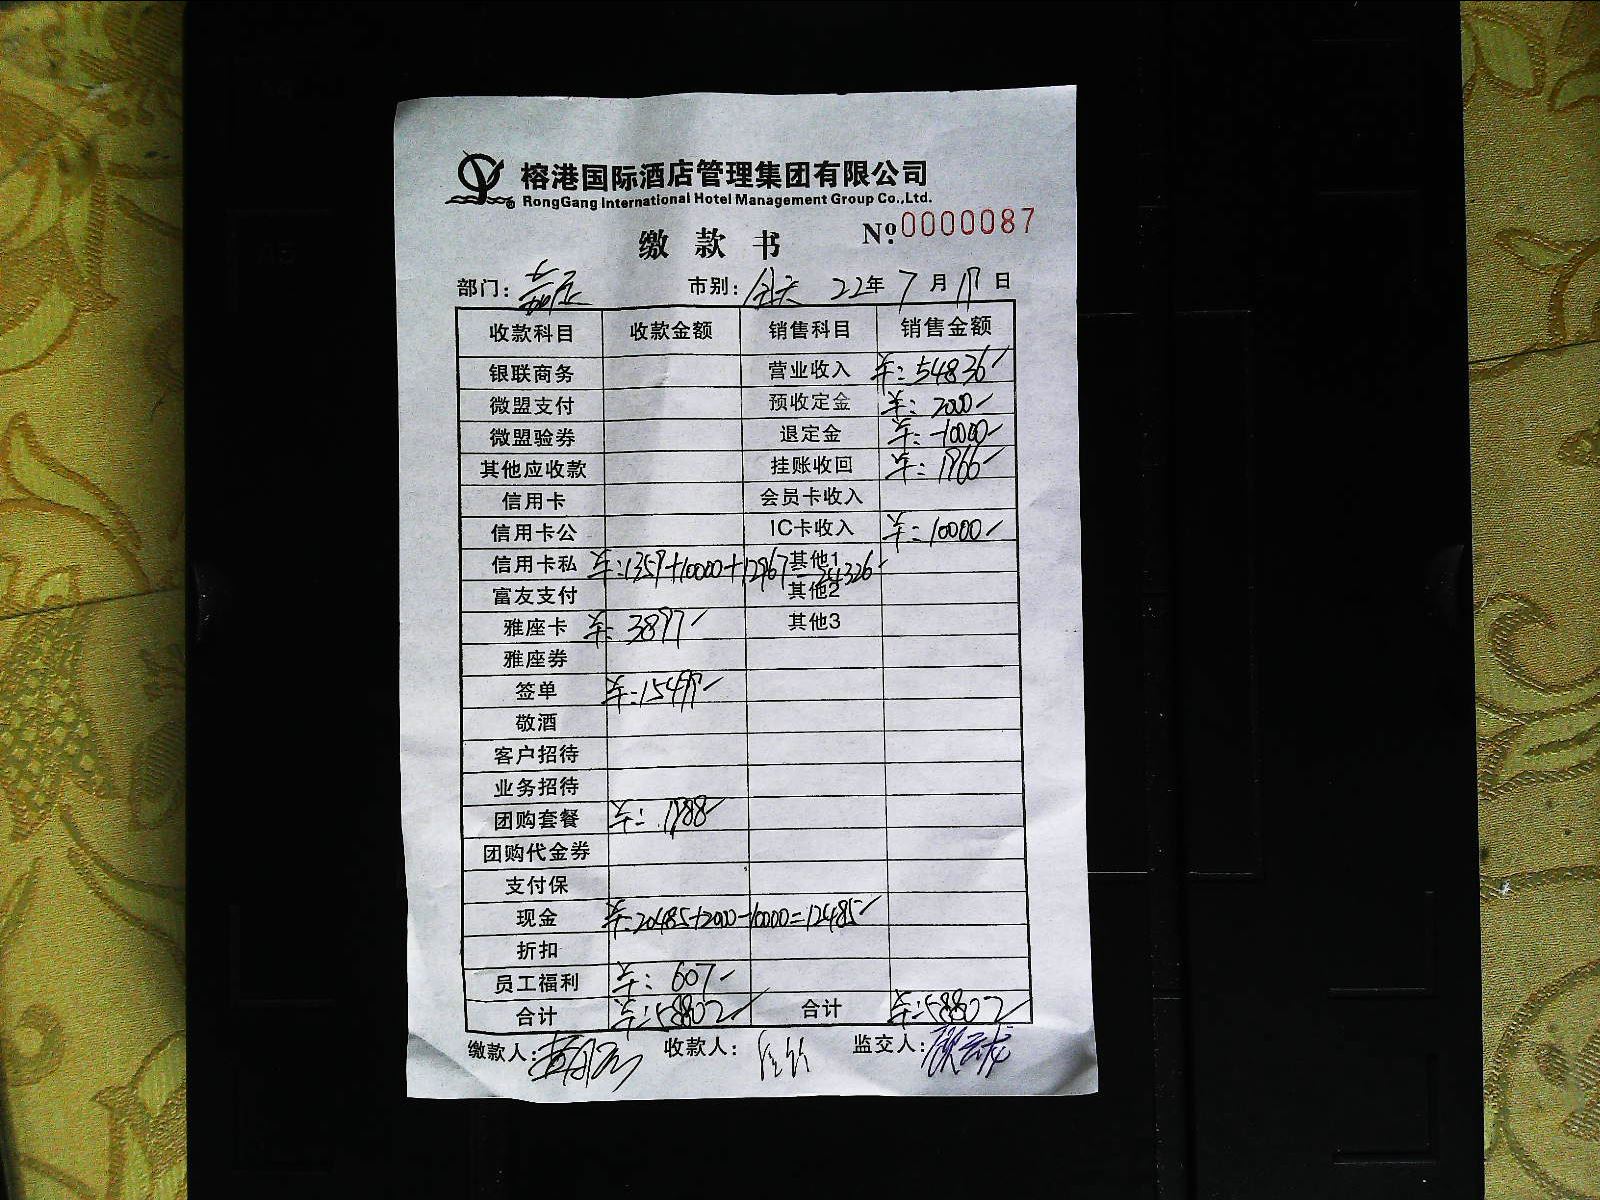 榕港国际酒店管理集团有限公司
RongGang International Hotel Management Group Co.,Ltd.
缴款书 Nº 0000087
部门: 市别: 全天 22年 7月 17日
收款科目 收款金额 销售科目 销售金额
银联商务 营业收入 54836
微盟支付 预收定金 2000
微盟验券 退定金 -10000
其他应收款 挂账收回 1966
信用卡 会员卡收入
信用卡公 IC卡收入 10000
信用卡私 1359+10000+12967=24326 其他1
富友支付 其他2
雅座卡 3897 其他3
雅座券
签单 15499
敬酒
客户招待
业务招待
团购套餐 1988
团购代金券
支付保
现金 20485+2000-10000=12485
折扣
员工福利 607
合计 58802 合计 58802
缴款人: 收款人: 监交人: